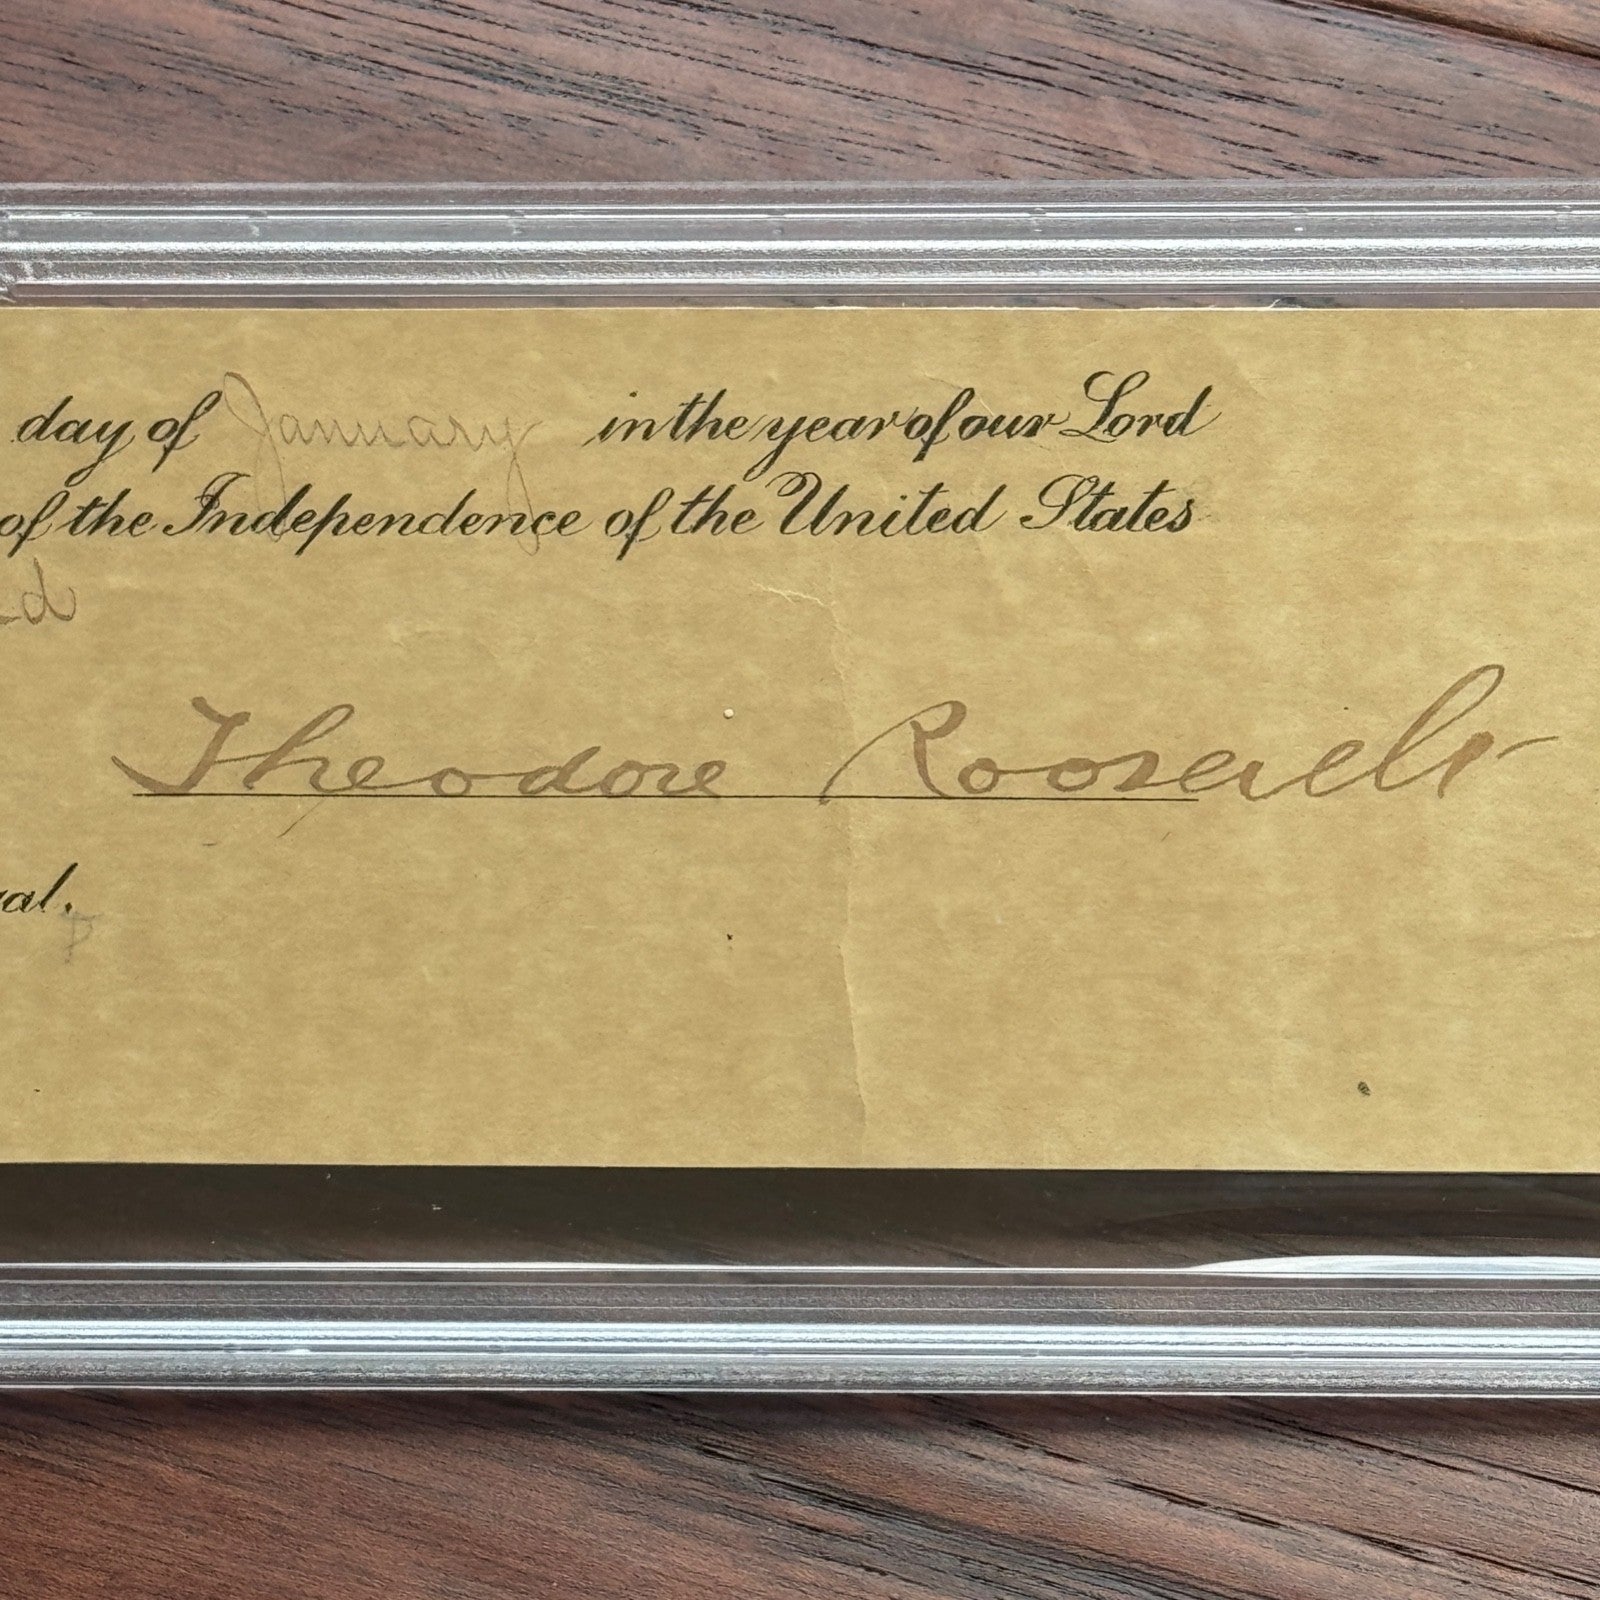 day of January in the year of our Lord
of the Independence of the United States
d
Theodore Roosevelt
al.